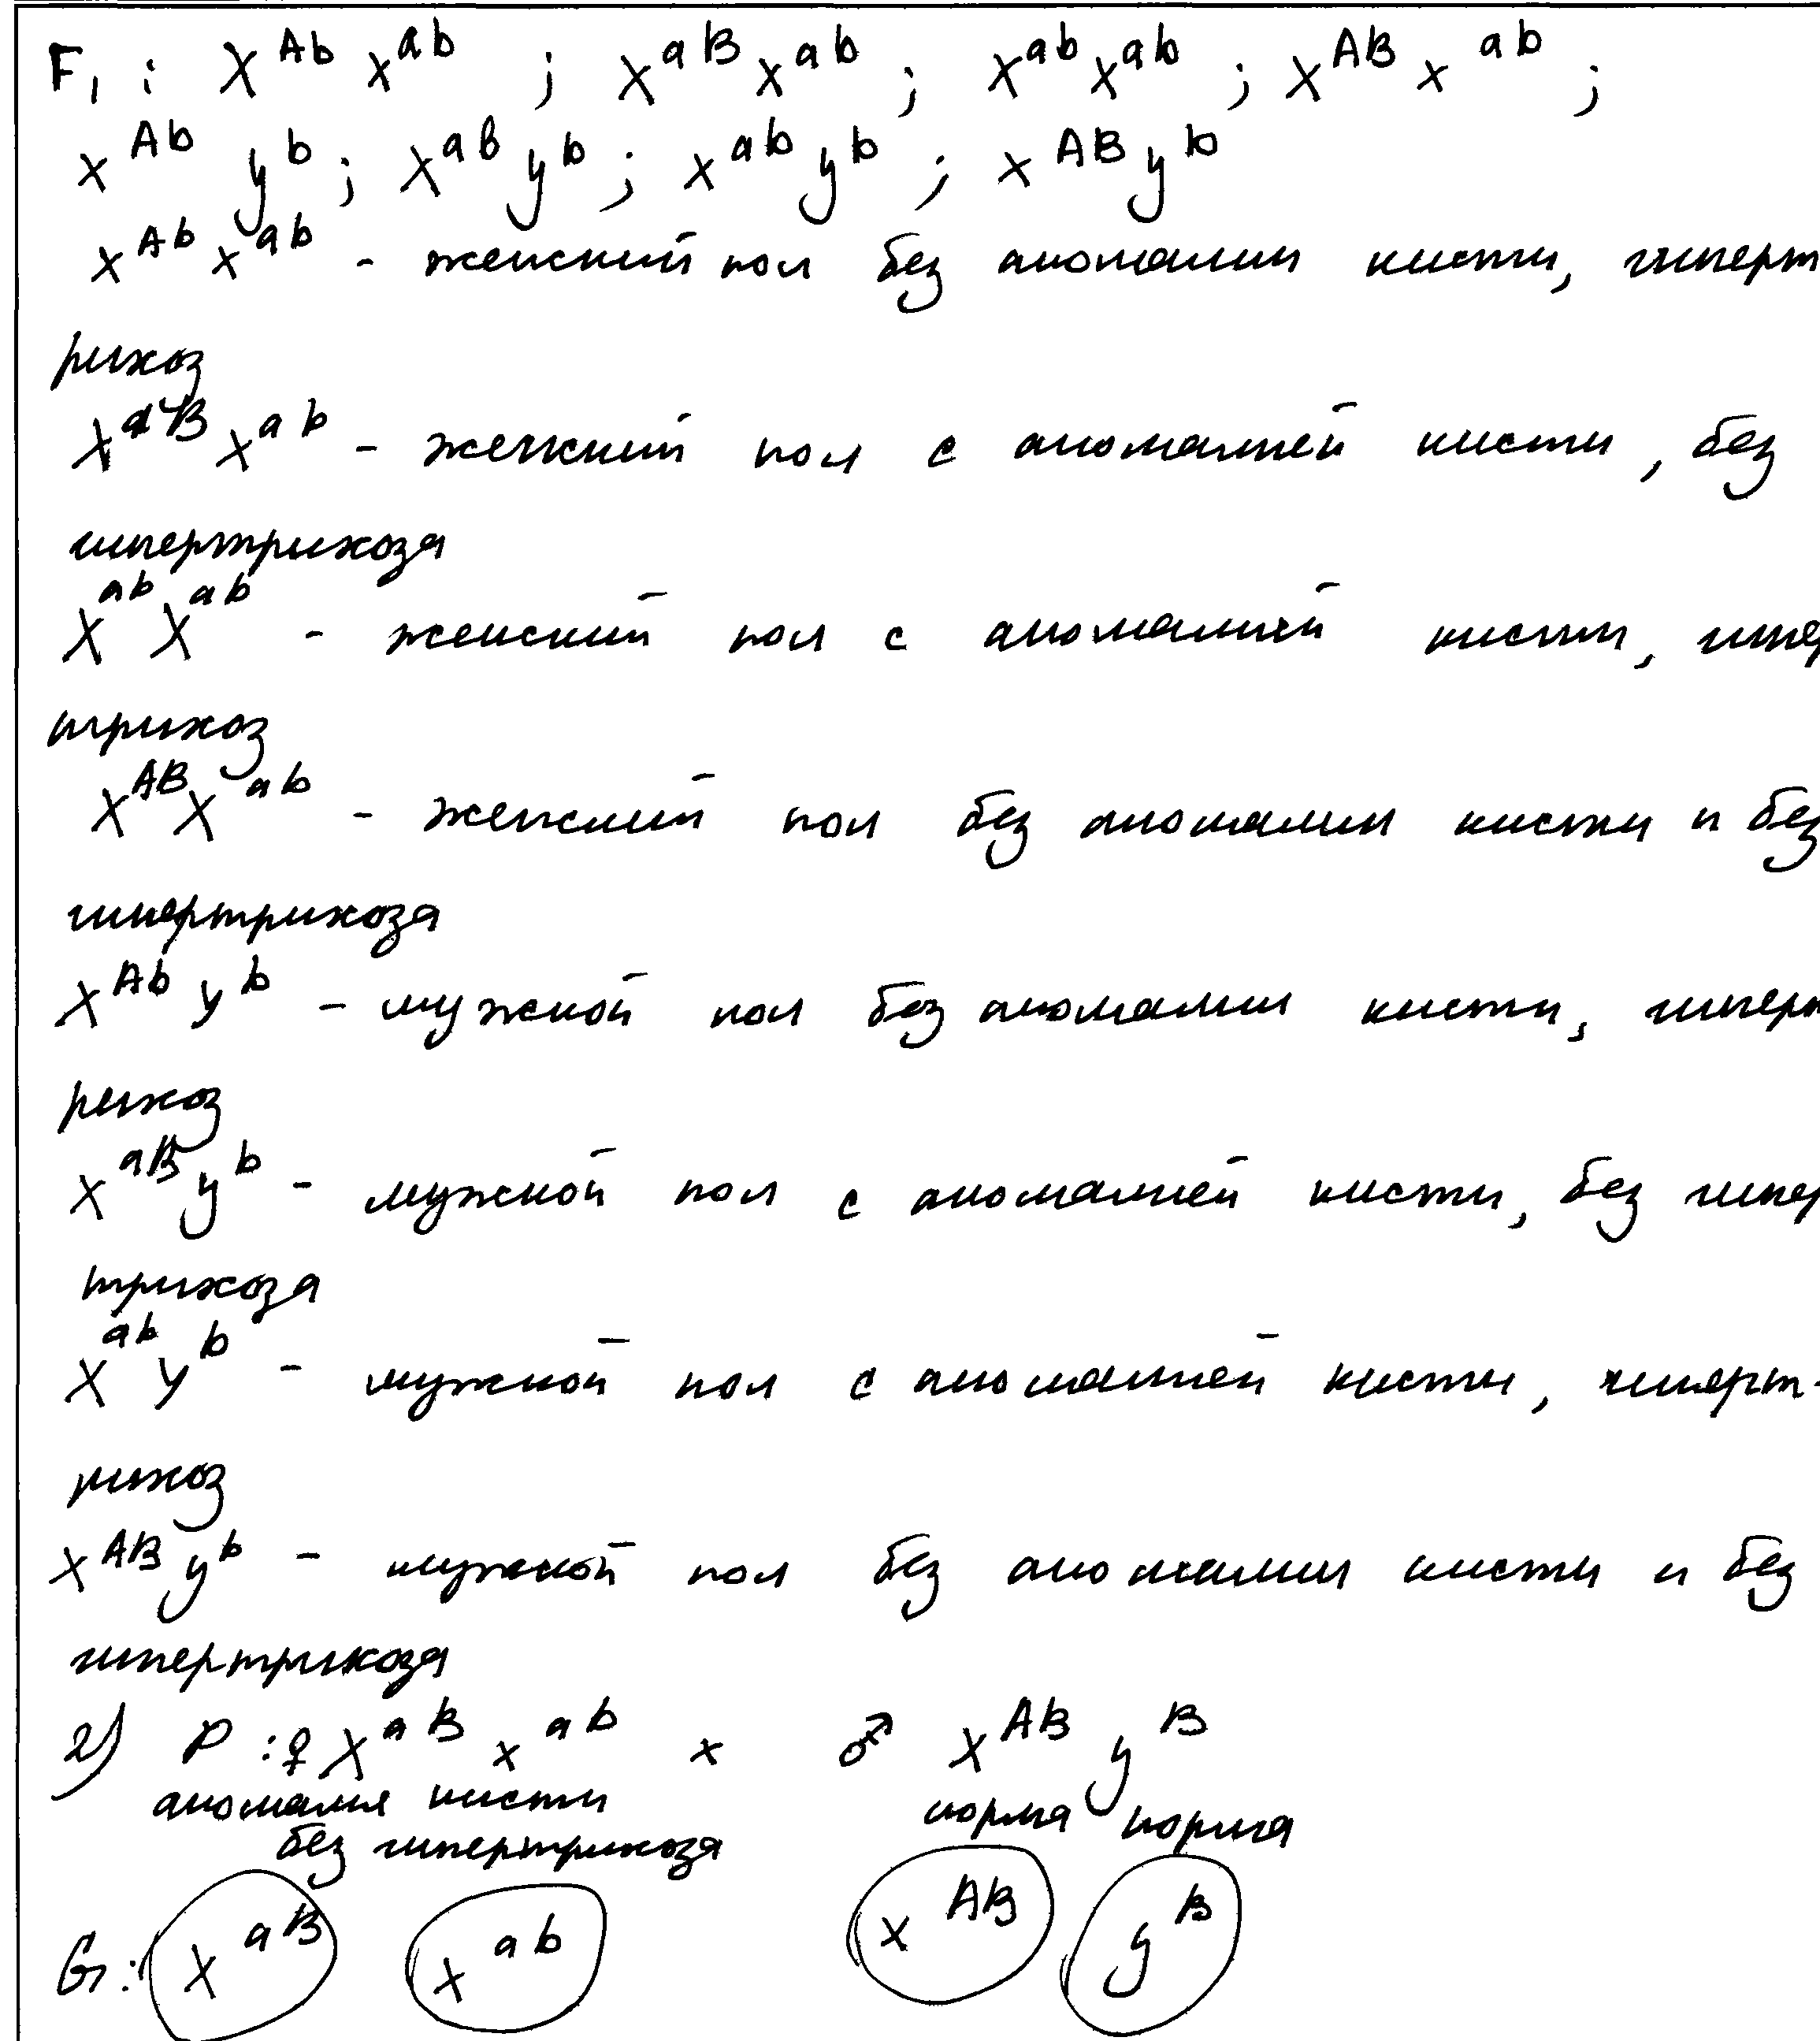 F₁ : X^Ab x^ab ; X^aB x^ab ; X^ab x^ab ; X^AB x^ab ;
x^Ab y^b ; X^aB y^b ; x^ab y^b ; x^AB y^b
x^Ab x^ab - женский пол без аномалии кисти, гиперт
рихоз
X^aB x^ab - женский пол с аномалией кисти, без
гипертрихоза
X^ab X^ab - женский пол с аномалией кисти, гипер
трихоз
X^AB X^ab - женский пол без аномалии кисти и без
гипертрихоза
X^Ab y^b - мужской пол без аномалии кисти, гиперт
рихоз
X^aB y^b - мужской пол с аномалией кисти, без гипер
трихоза
X^ab y^b - мужской пол с аномалией кисти, гиперт-
рихоз
x^AB y^b - мужской пол без аномалии кисти и без
гипертрихоза
2) P : ♀ X^aB x^ab x ♂ X^AB y^B
аномалия кисти норма норма
без гипертрихоза
G : X^aB x^ab x^AB y^B